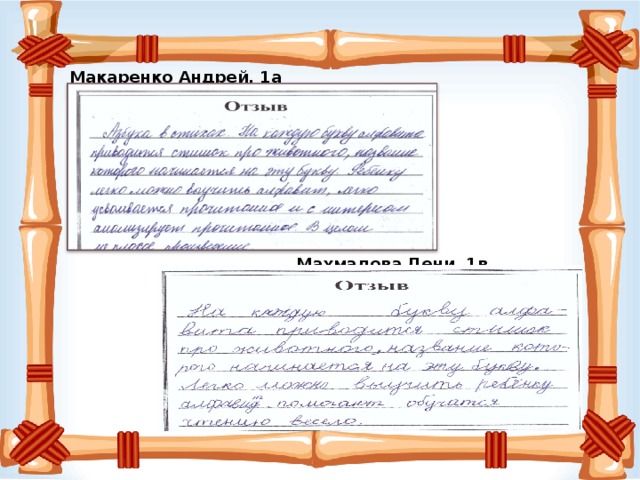 Макаренко Андрей. 1а
Отзыв
Азбука в стихах. На каждую букву алфавита
приводится стишок про животного, название
которого начинается на эту букву. Ребенку
легко можно выучить алфавит, легко
усваивается прочитанное и с интересом
анализирует прочитанное. В целом
неплохое произведение
Махмадова Дени. 1в
Отзыв
На каждую букву алфа-
вита приводится стишок
про животного, название кото-
рого начинается на эту букву.
Легко можно выучить ребёнку
алфавит помогают обучатся
чтению весело.